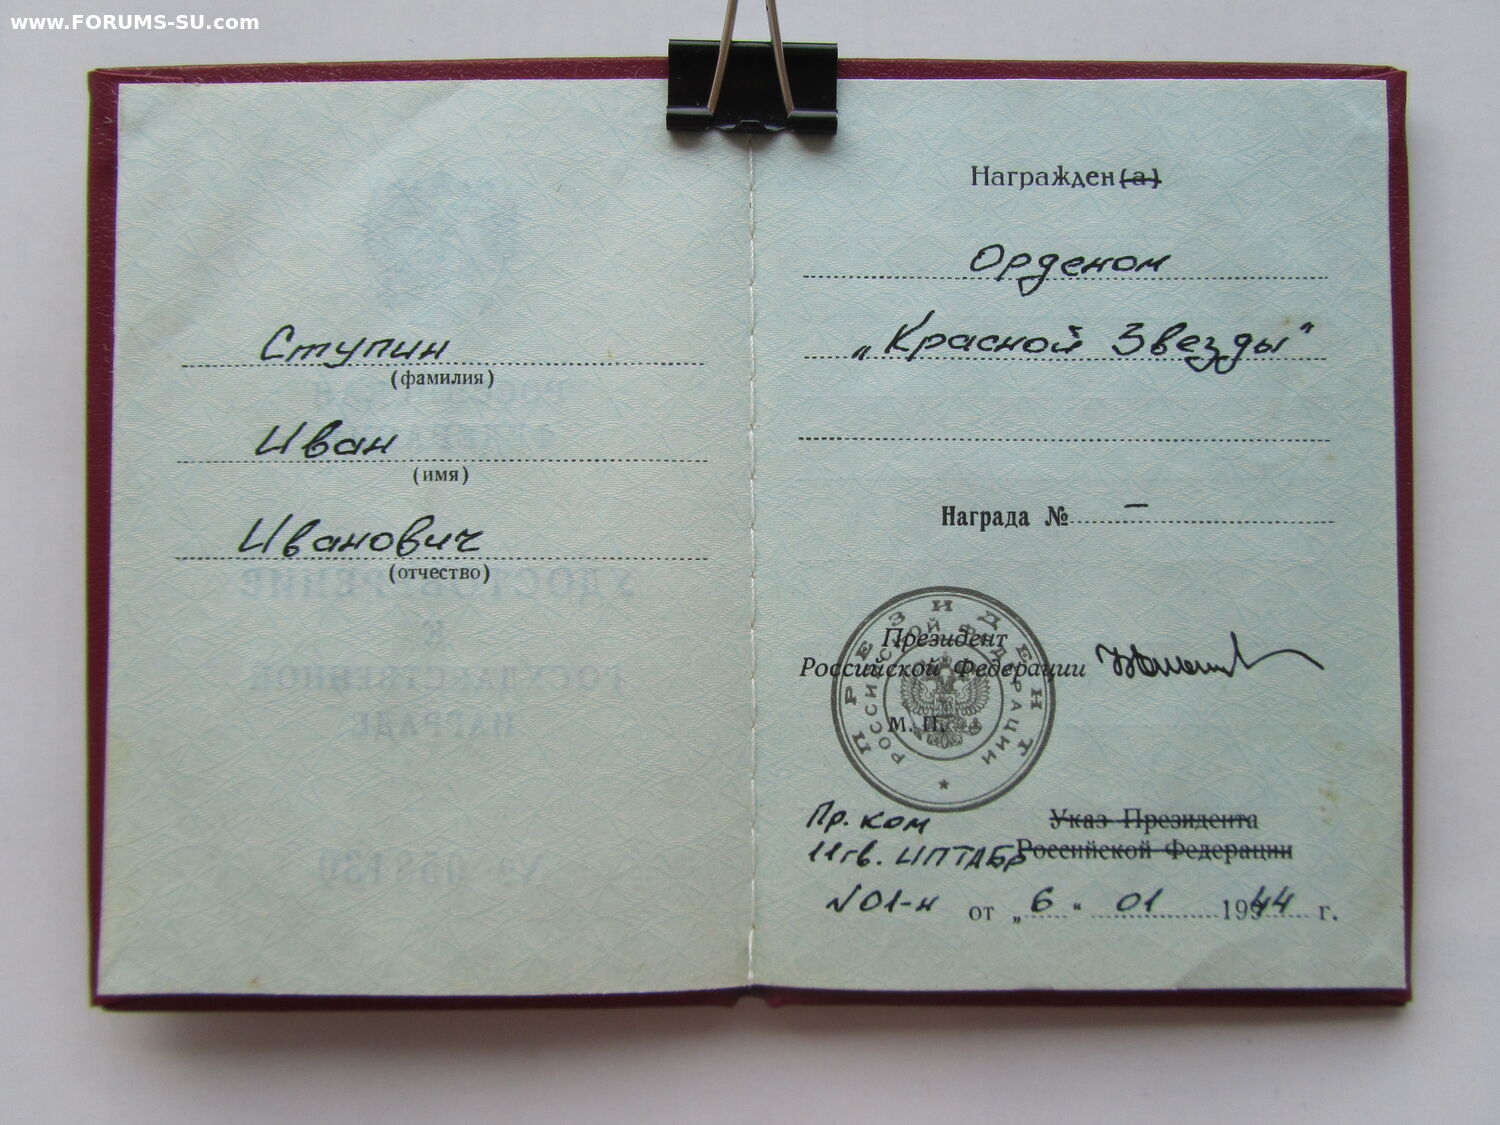 www.FORUMS-SU.com
Ступин
(фамилия)
Иван
(имя)
Иванович
(отчество)
Награжден(а)
Орденом
„Красной Звезды"
Награда № –
ПРЕЗИДЕНТ
РОССИЙСКОЙ ФЕДЕРАЦИИ
Президент
Российской Федерации
М. П.
Пр. ком Указ Президента
11гв. ИПТАБР Российской Федерации
№01-н от „6" 01 1944 г.